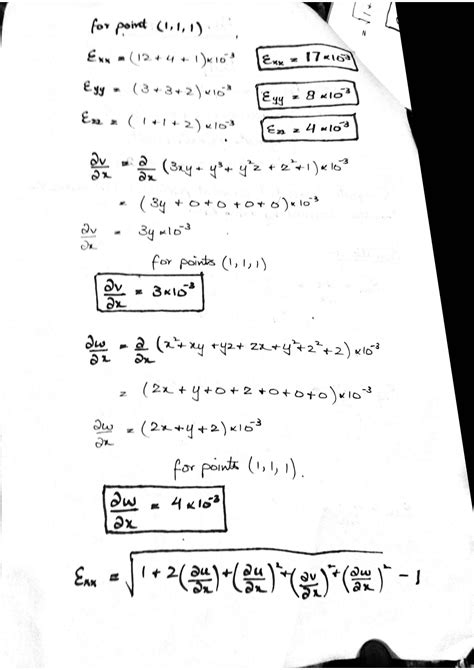 for point (1,1,1)
Exx = (12+4+1)×10^-3 Exx = 17×10^-3
Eyy = (3+3+2)×10^-3 Eyy = 8×10^-3
Ezz = (1+1+2)×10^-3 Ezz = 4×10^-3
∂v/∂x = ∂/∂x (3xy + y^3 + y^2z + z^2+1)×10^-3
= (3y + 0 + 0 + 0 + 0)×10^-3
∂v/∂x = 3y×10^-3
for points (1,1,1)
∂v/∂x = 3×10^-3
∂w/∂x = ∂/∂x (x^2+xy+yz+zx+y^2+z^2+2)×10^-3
= (2x+y+0+z+0+0+0)×10^-3
∂w/∂x = (2x+y+z)×10^-3
for points (1,1,1).
∂w/∂x = 4×10^-3
Exx = √(1+2(∂u/∂x)+(∂u/∂x)^2+(∂v/∂x)^2+(∂w/∂x)^2) - 1